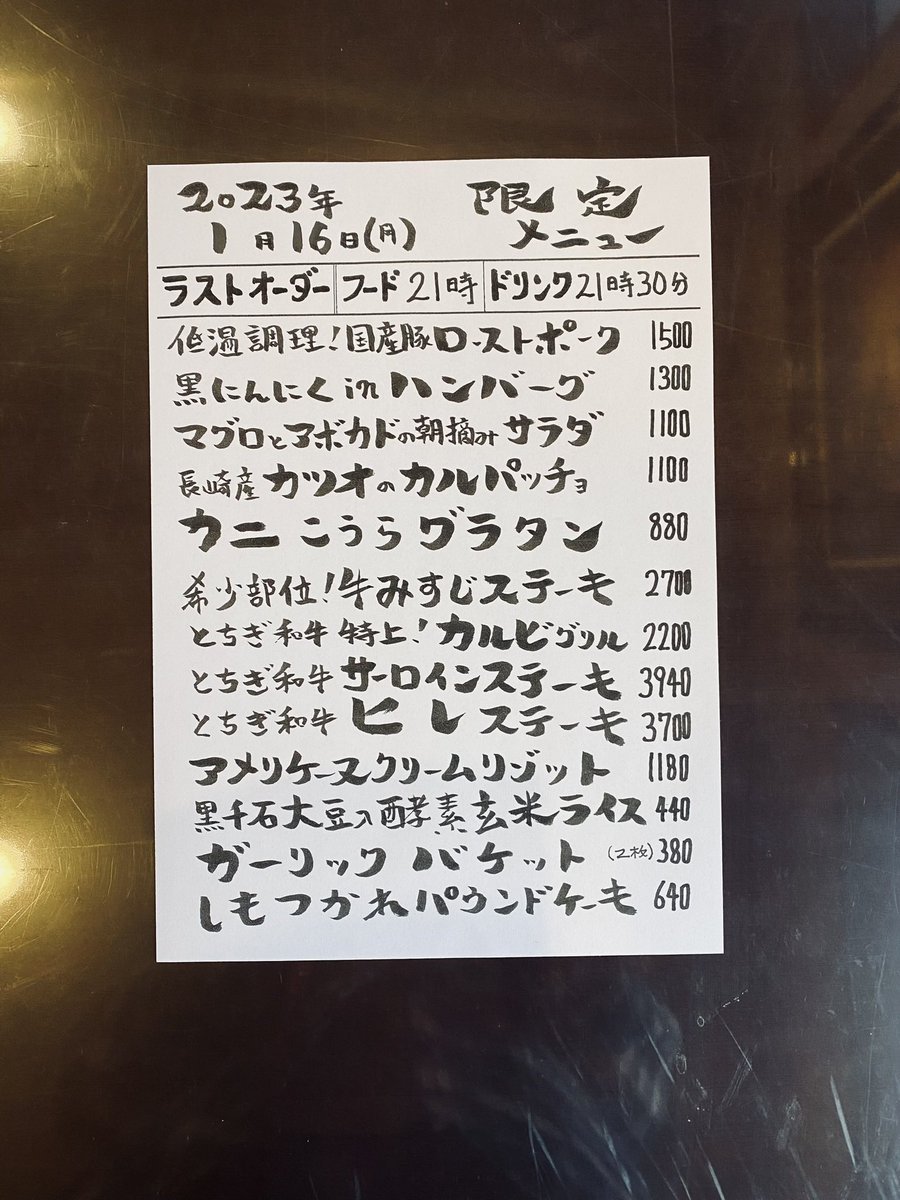 2023年 限定
1月16日(月) メニュー
ラストオーダー フード21時 ドリンク21時30分
低温調理!国産豚ローストポーク 1500
黒にんにくinハンバーグ 1300
マグロとアボカドの朝摘みサラダ 1100
長崎産カツオのカルパッチョ 1100
カニこうらグラタン 880
希少部位!牛みすじステーキ 2700
とちぎ和牛 特上!カルビグリル 2200
とちぎ和牛 サーロインステーキ 3940
とちぎ和牛 ヒレステーキ 3700
アメリケーヌクリームリゾット 1180
黒千石大豆入酵素玄米ライス 440
ガーリックバケット (2枚) 380
しもつかれパウンドケーキ 640